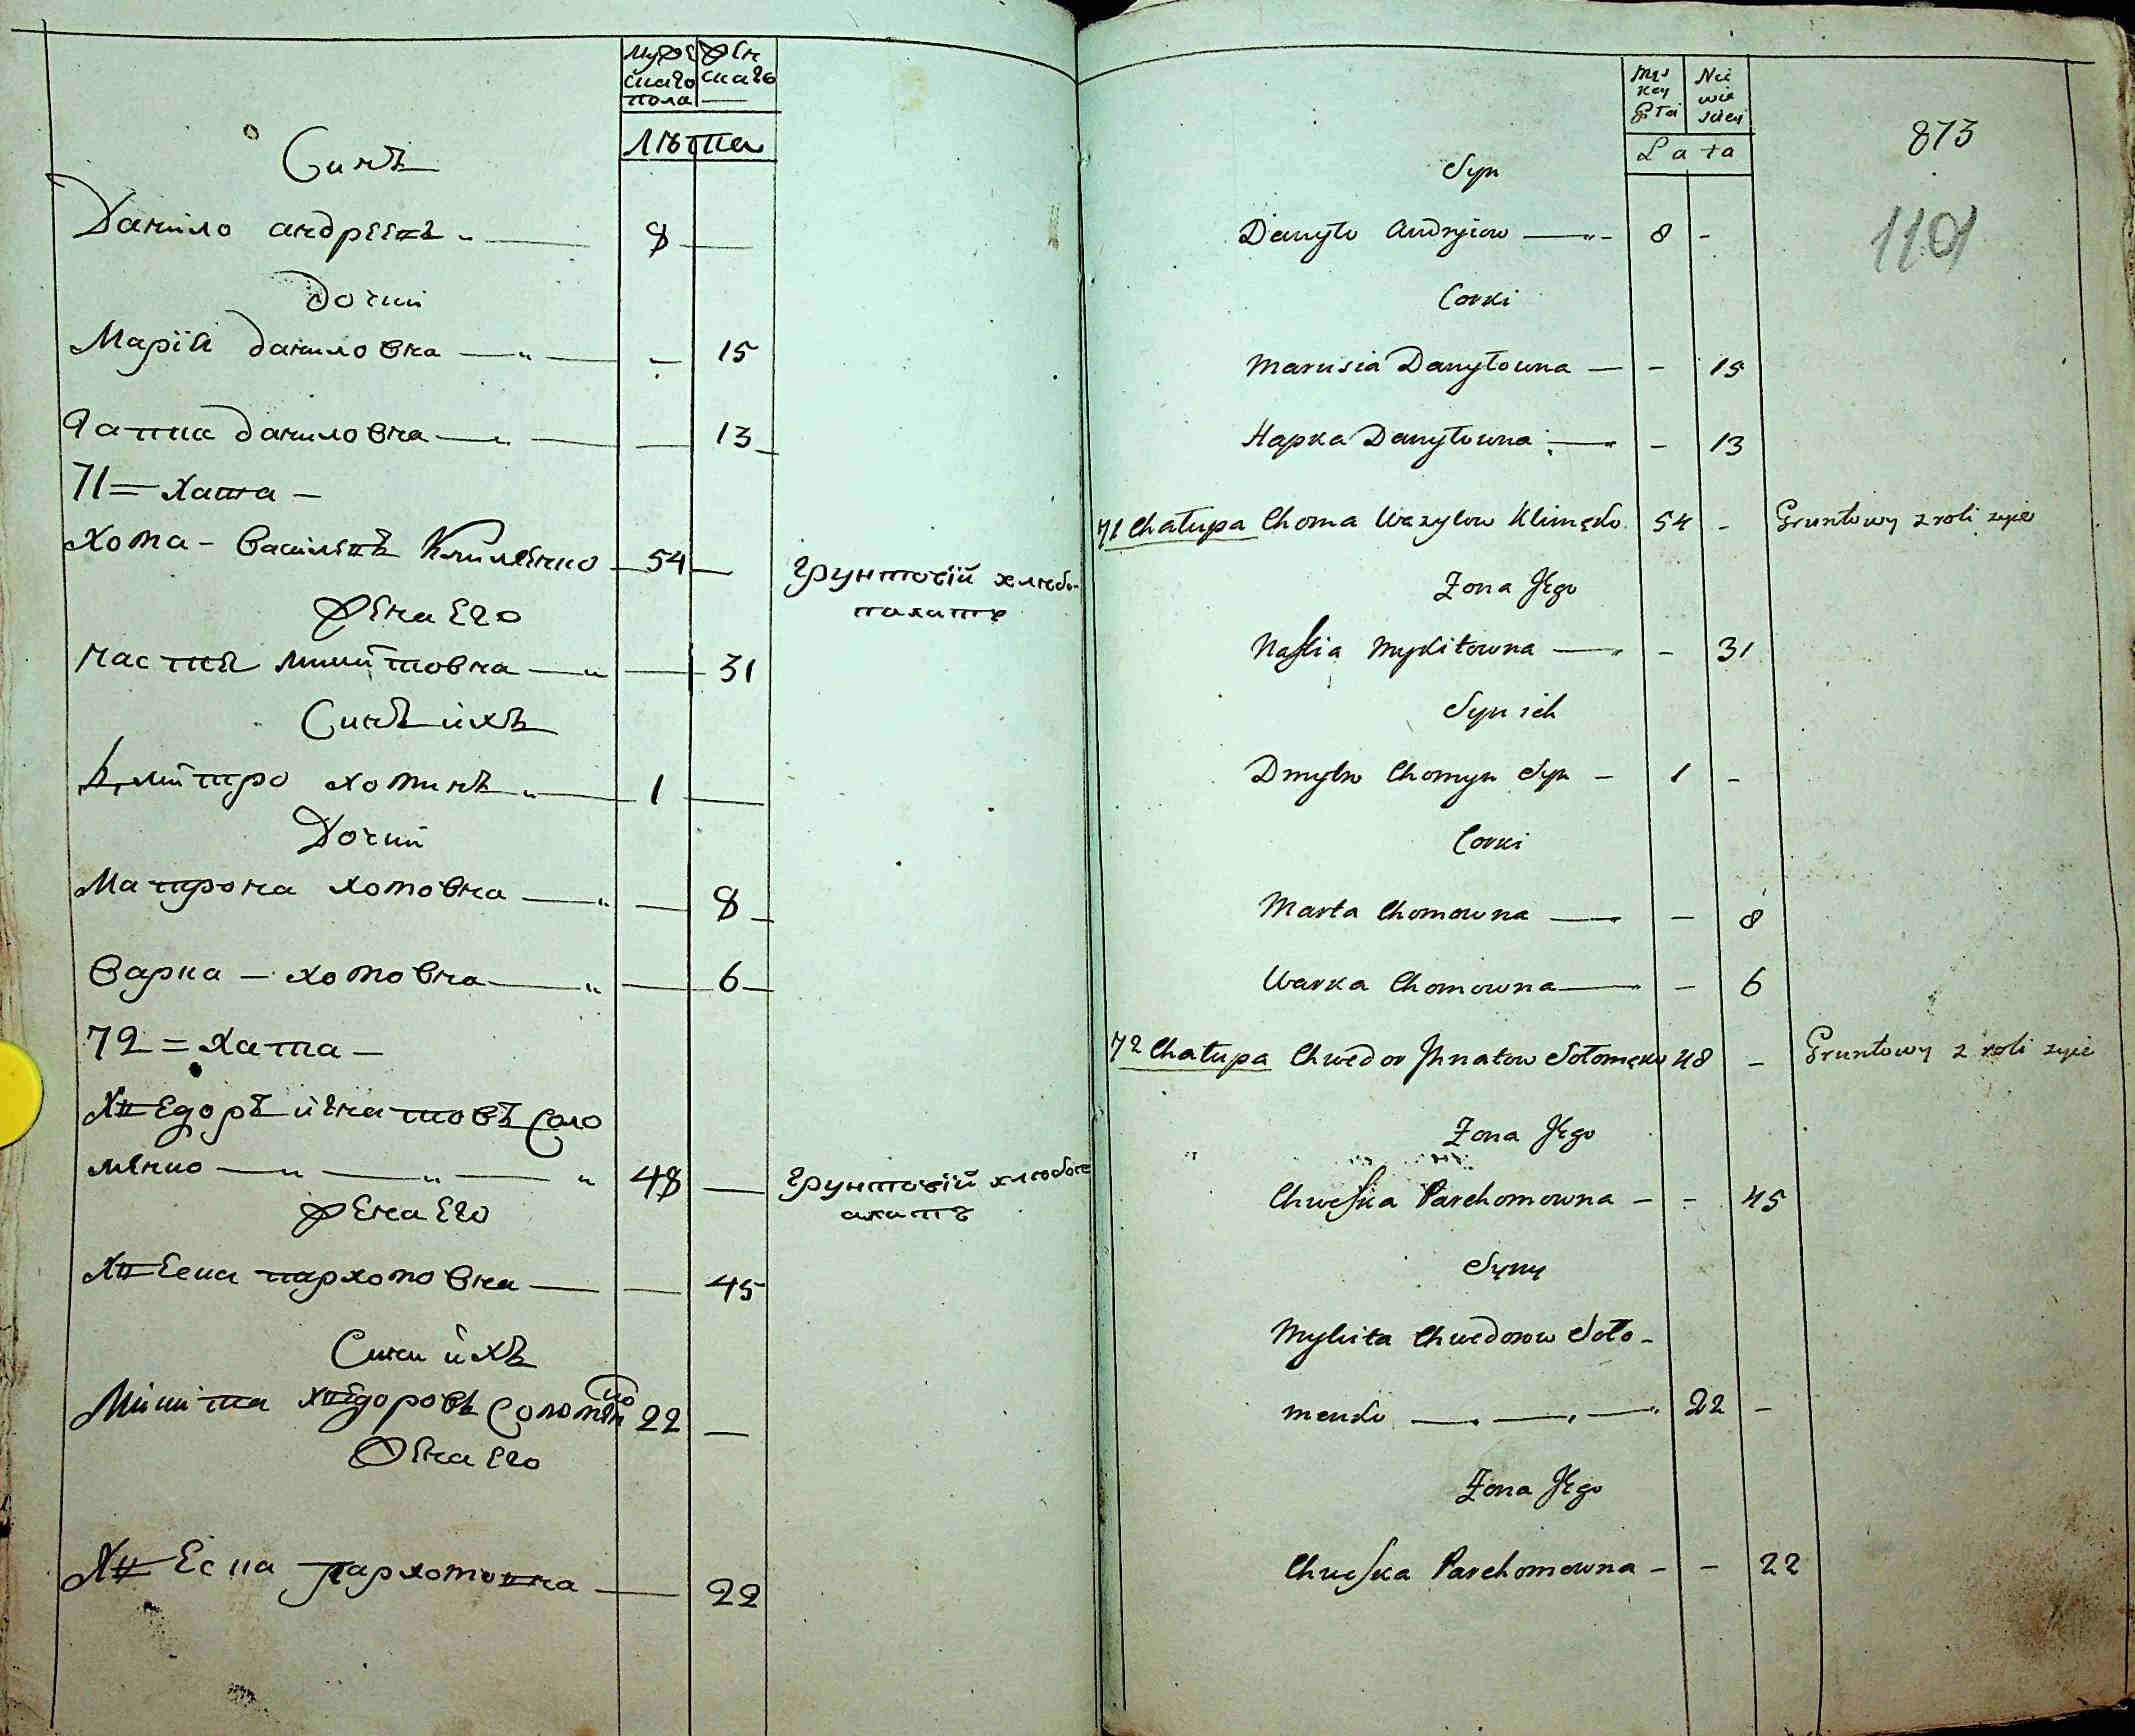 муже жен
скаго скаго
пола
лѣта
Синъ
Данило андрѣевъ 8
Дочки
Маріѣ даниловна 15
Гапка даниловна 13
71 = хата -
Хома - Василевъ Клименко 54 грунтовій хлѣбо-
пахатъ
Жена Его
Настя микитовна 31
Синъ ихъ
Дмитро хоминъ 1
Дочки
Матрона хомовна 8
Варка - хомовна 6
72 = Хата -
Хведоръ игнатовъ Соло
менко 48 грунтовій хлѣбоп
ахатъ
Жена Его
Хвеска пархомовна 45
Сини ихъ
Микита хведоровъ соломенко 22
Жена Его
Хвеска пархомовна 22
Męs Nie
key wie
Płci sciey
Lata
873
1101
Syn
Danyło Andryiow 8 -
Corki
Marusia Danyłowna - 15
Hapka Danyłowna - 13
71 Chałupa Choma Wazylow Klimęko 54 - Gruntowy z roli życie
Zona Jego
Nastia Mykitowna - 31
Syn ich
Dmytro Chomyn Syn - 1 -
Corki
Marta Chomowna - 8
Warka Chomowna - 6
72 Chałupa Chwedor Jhnatow Sołomęko 48 - Gruntowy z roli życie
Zona Jego
Chweska Parchomowna - - 45
Syny
Mykita Chwedorow Soło-
menko 22 -
Zona Jego
Chweska Parchomowna - - 22